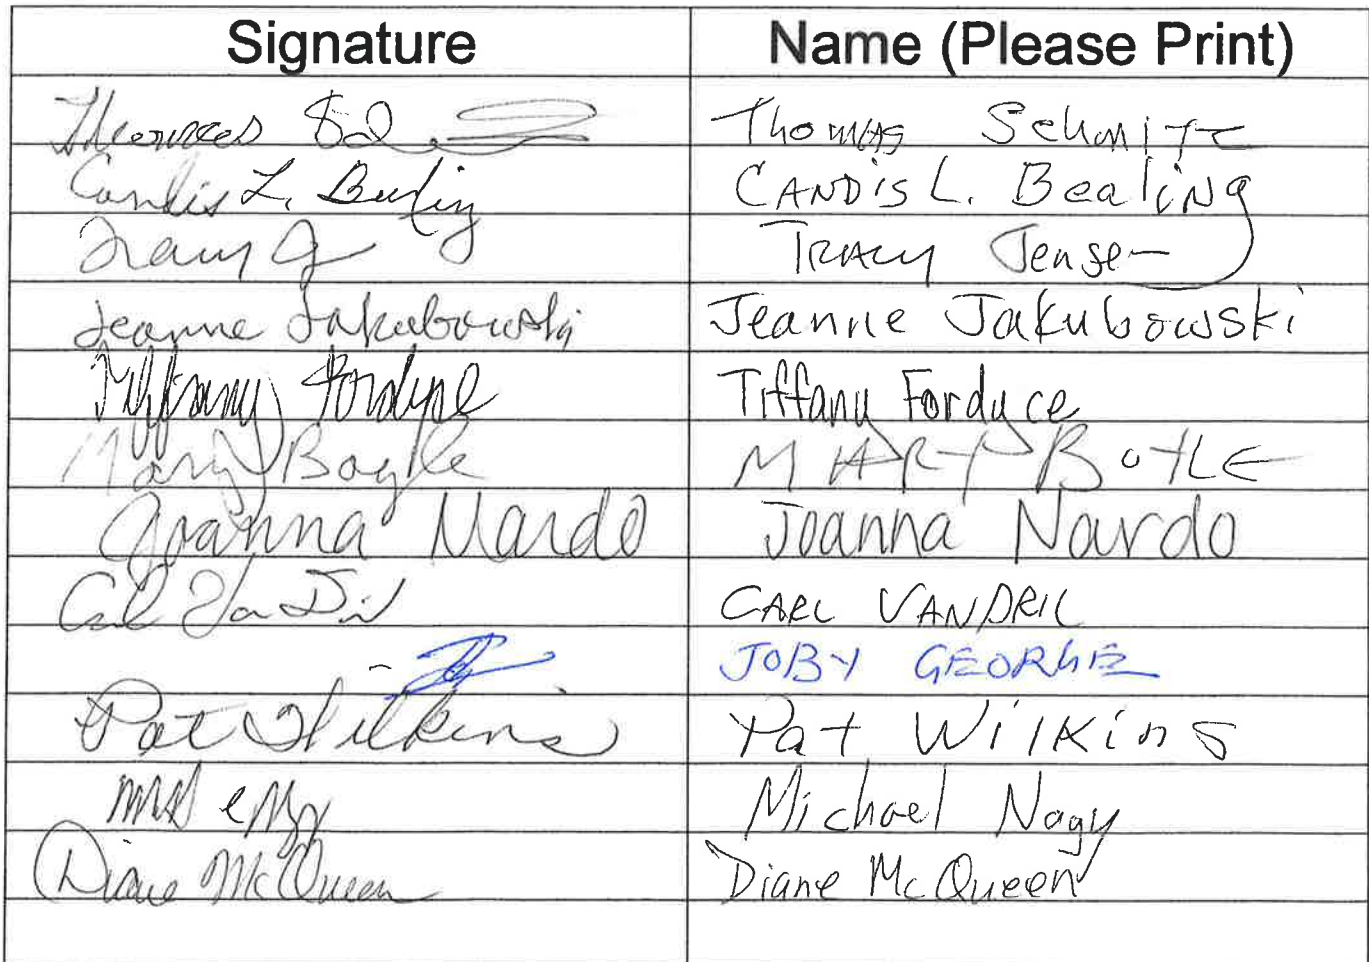 Signature Name (Please Print)
Thomas Thomas Schmitz
Candis L. Bealing CANDIS L. BealiNG
Tracy J TRACY Jensen
Jeanne Jakubowski Jeanne Jakubowski
Tiffany Fordyce Tiffany Fordyce
Mary Boyle MARY BOYLE
Joanna Nardo Joanna Nardo
Carl VanDril CARL VANDRIL
JOBY GEORGE
Pat Wilkins Pat Wilkins
Michael Nagy
Diane McQueen Diane McQueen